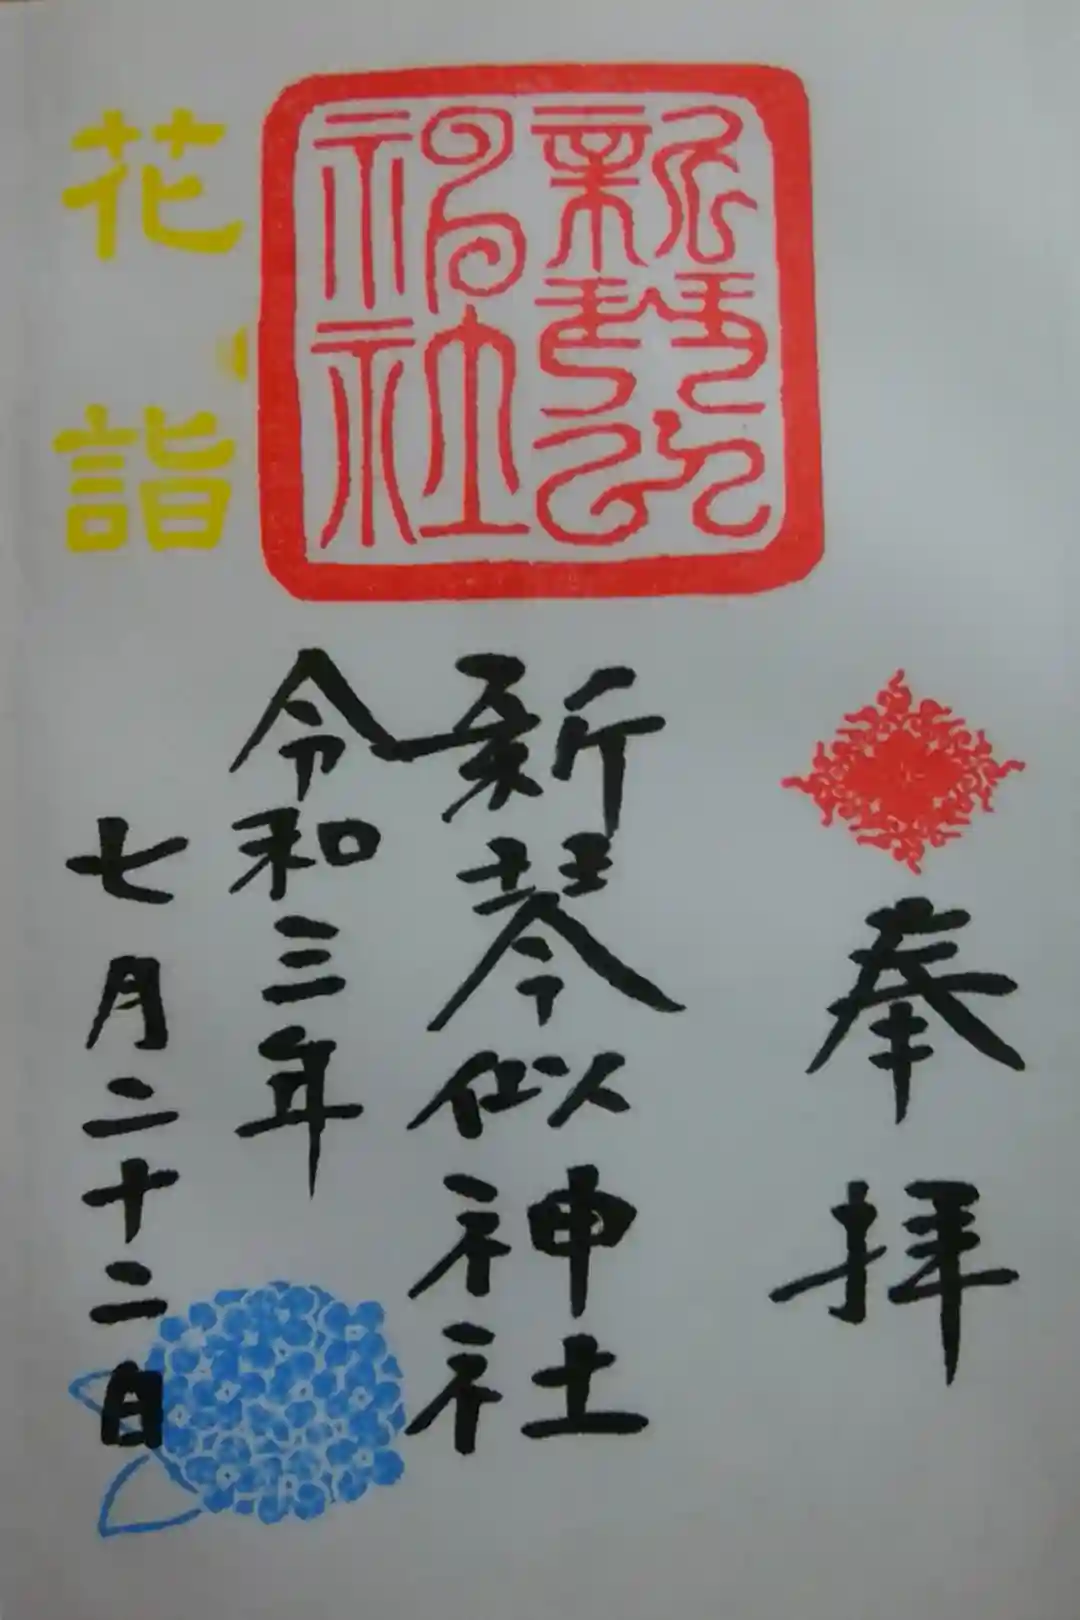 奉拝
新琴似神社
令和三年
七月二十二日
新琴似神社
花詣